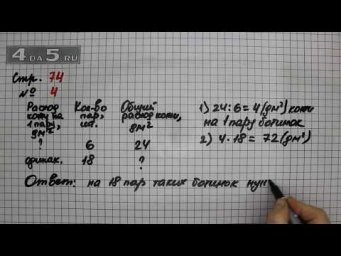 4DA5.RU
Стр. 74
№ 4
Расход кожи на 1 пару, дм²
Кол-во пар, шт.
Общий расход кожи, дм²
? 6 24
одинак. 18 ?
1) 24:6=4(дм²) кожи
на 1 пару ботинок
2) 4·18=72(дм²)
Ответ: на 18 пар таких ботинок нуж